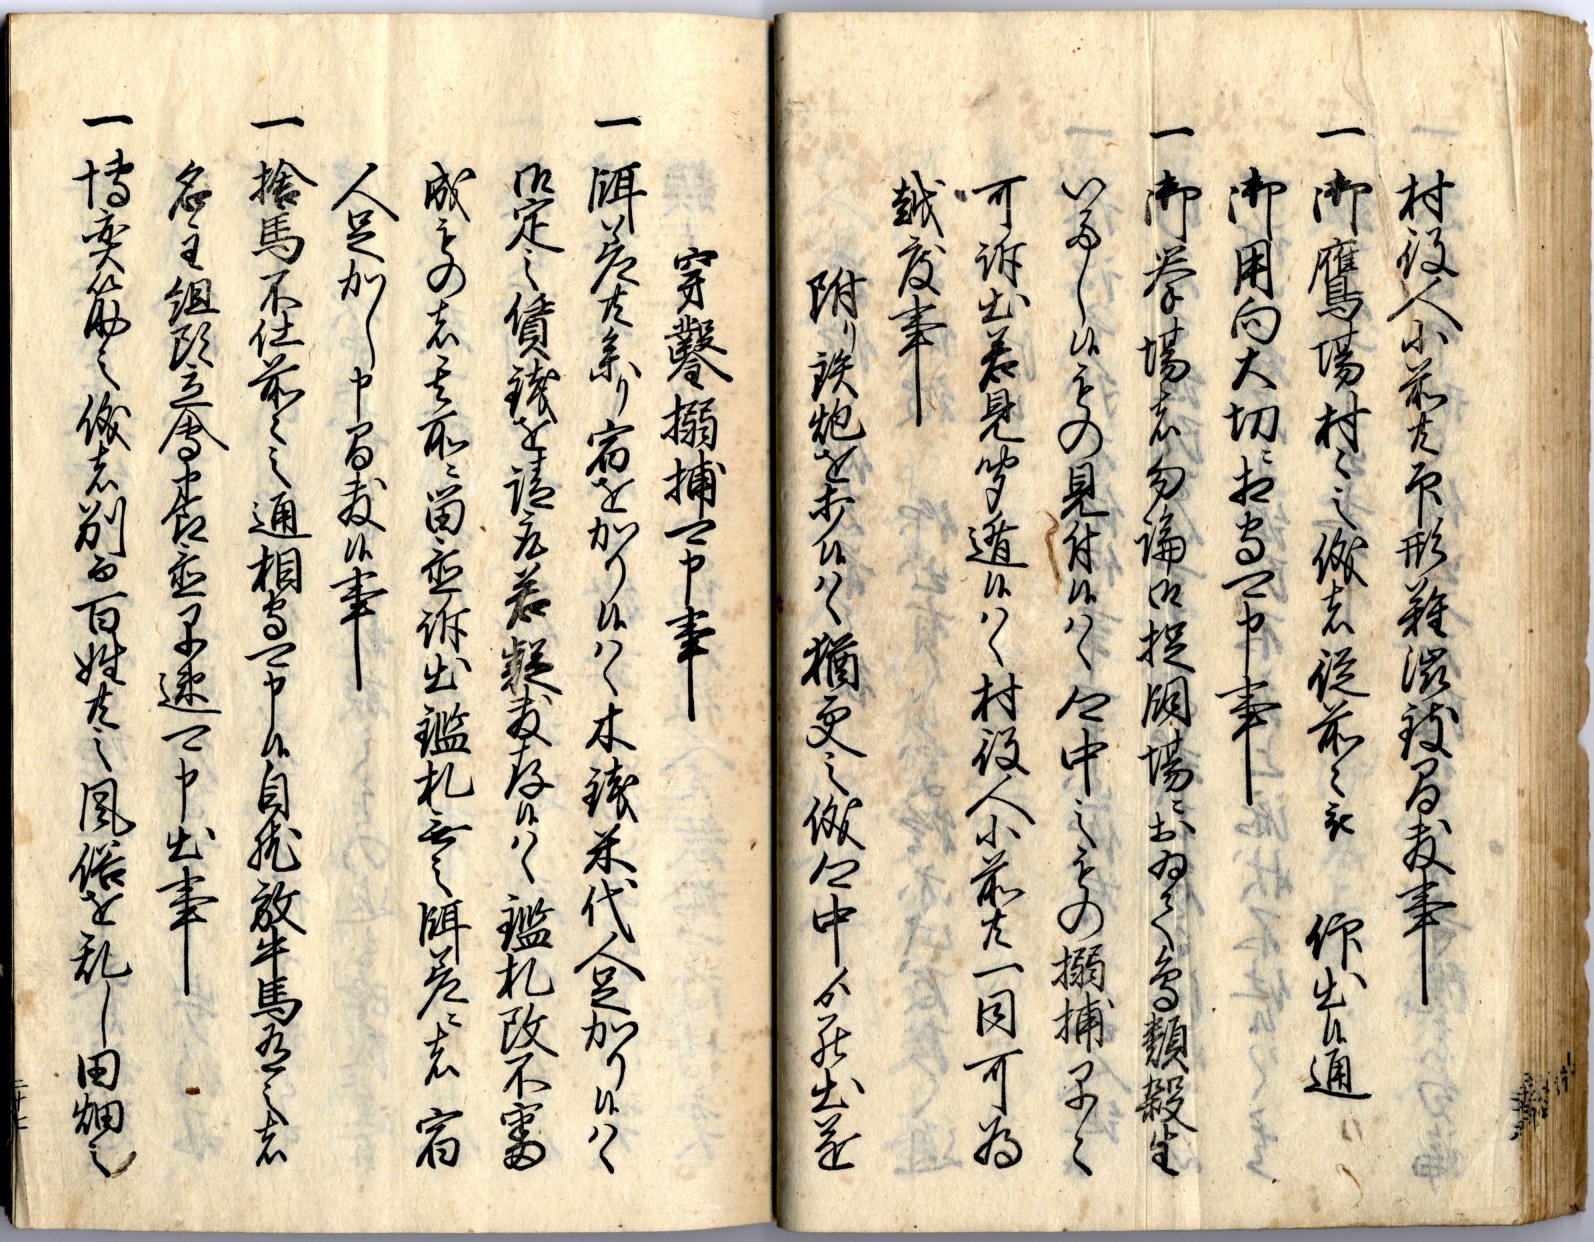 村役人小前共印形難渋致間敷事
一 御鷹場村々之儀者従前々被 仰出候通
御用向大切ニ相守可申事
一 御拳場者勿論御捉飼場ニおゐて鳥類殺生
いたし候もの見付候ハヽ郷中之もの搦捕早々
可訴出若見聞遁候ハヽ村役人小前共一同可為
越度事
附り鉄炮を打候ハヽ猶更之儀郷中分ケ出逆
穿鑿搦捕可申事
一 餌差共参り宿を かり候ハヽ木銭米代人足かり候ハヽ
御定之賃銭を請取若疑敷存候ハヽ鑑札改不審
成もの者其所ニ留置訴出鑑札無之餌差ニ者宿
人足かし申間敷候事
一 捨馬不仕前々之通相守可申候自然放牛馬有之者
名主組頭立会申合置早速可申出事
一 博奕筋之儀者別而百姓共之風俗を乱し田畑之